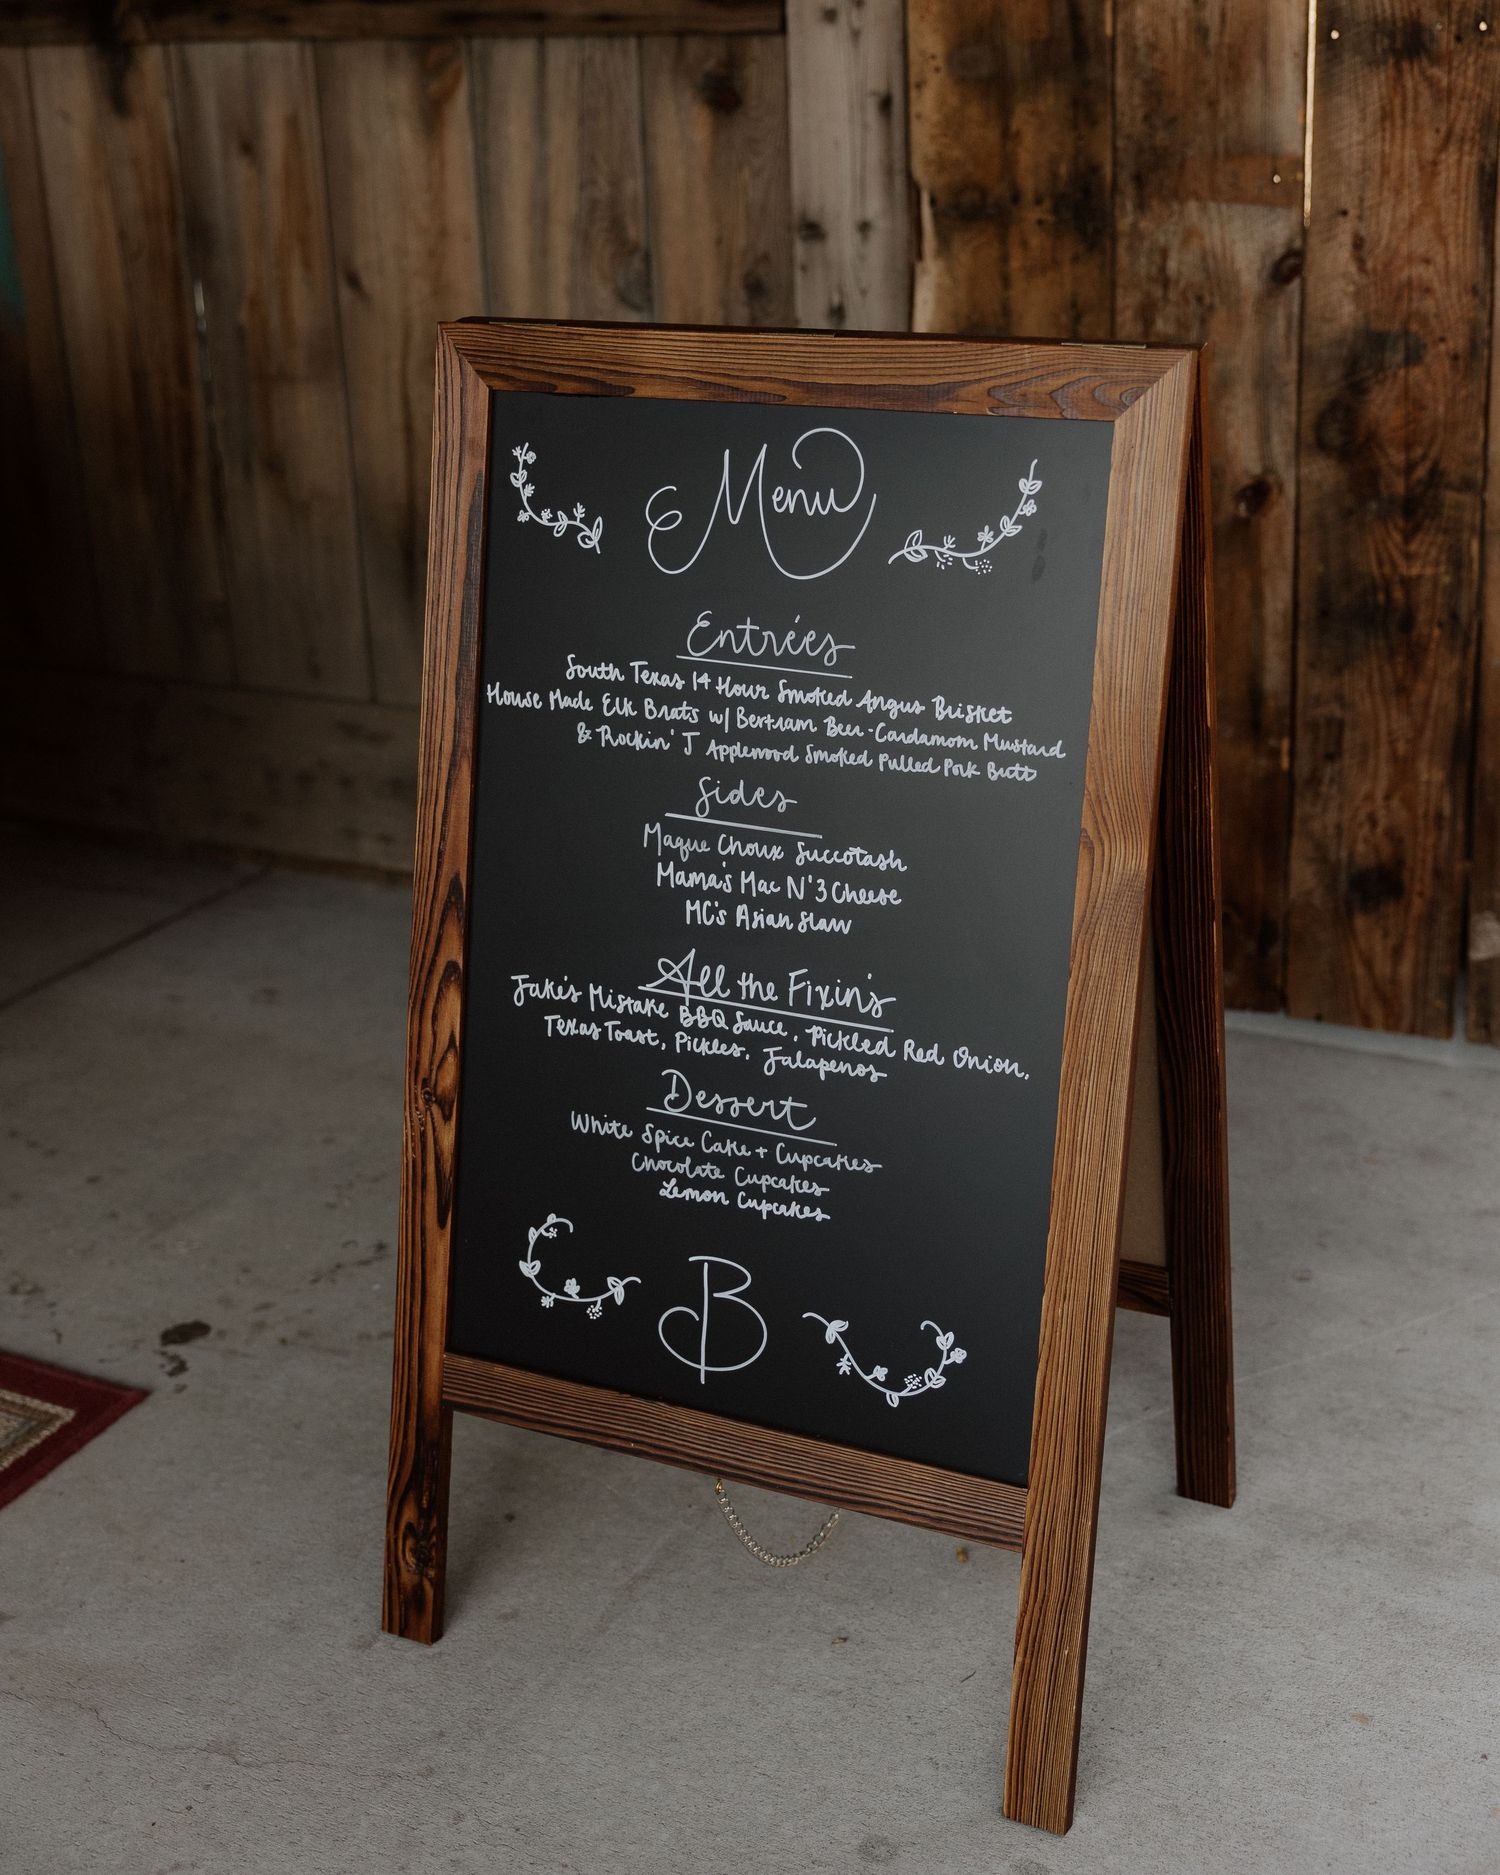 Menu
Entrées
South Texas 14 Hour Smoked Angus Brisket
House Made Elk Brats w/ Bertram Beer-Cardamom Mustard
& Rockin' J Applewood Smoked Pulled Pork Butt
Sides
Maque Choux Succotash
Mama's Mac N' 3 Cheese
MC's Asian Slaw
All the Fixin's
Jake's Mistake BBQ Sauce, Pickled Red Onion,
Texas Toast, Pickles, Jalapenos
Dessert
White Spice Cake + Cupcakes
Chocolate Cupcakes
Lemon Cupcakes
B